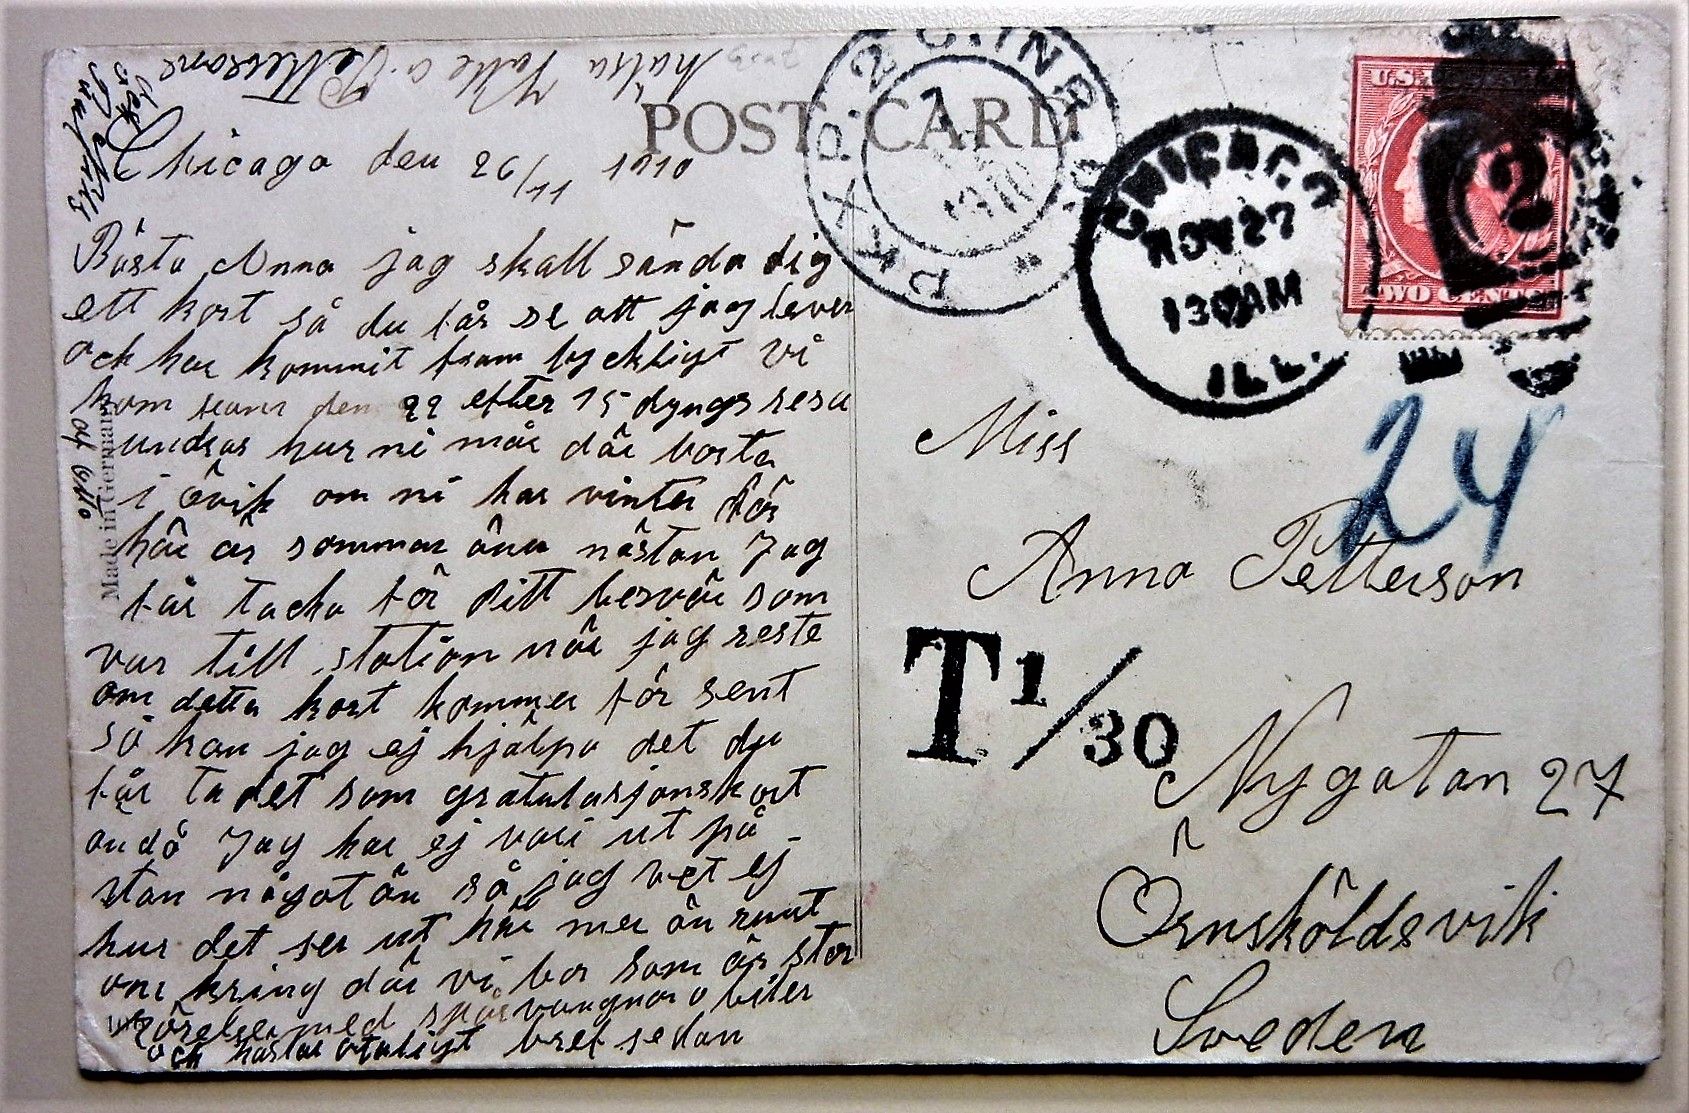 hälsa Kalle o. Petterssons
POST CARD
PKXP. 2 C. INR
1910
CHICAGO
NOV 27
130 AM
ILL.
U.S. POSTAGE
TWO CENTS
2
Chicago den 26/11 1910
Bästa Anna jag skall sända dig
ett kort så du får se att jag lever
och har kommit fram lyckligt vi
kom fram den 22 efter 15 dyngs resa
undrar hur ni mår där borta
i övik om ni har vinter där
här är sommar ännu nästan Jag
får tacka för ditt besvär som
var till station när jag reste
om detta kort kommer för sent
så kan jag ej hjälpa det du
får ta det som gratulasjonskort
ändå Jag har ej vari ut på
stan något än så jag vet ej
hur det ser ut här mer än runt
om kring där vi bor som är stor
rörelse med spårvangnar o biler
och hästar otaligt bref sedan
af Otto
Made in Germany
Miss
24
Anna Petterson
T 1/30
Nygatan 27
Örnsköldsvik
Sveden